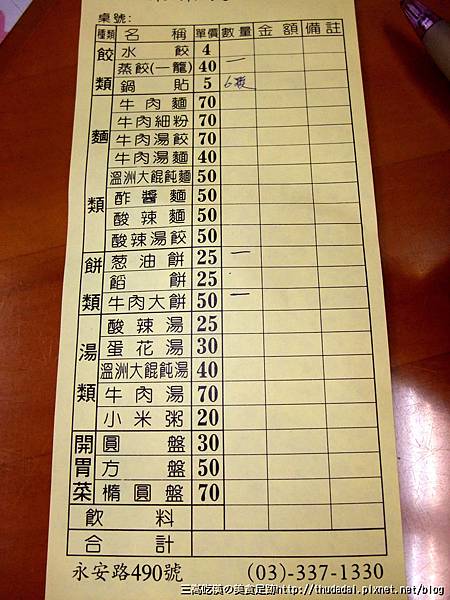 桌號:
種類 名稱 單價 數量 金額 備註
餃類
水餃 4
蒸餃(一籠) 40 一
鍋貼 5 6隻
麵類
牛肉麵 70
牛肉細粉 70
牛肉湯餃 70
牛肉湯麵 40
溫洲大餛飩麵 50
酢醬麵 50
酸辣麵 50
酸辣湯餃 50
餅類
葱油餅 25 一
餡餅 25
牛肉大餅 50 一
湯類
酸辣湯 25
蛋花湯 30
溫洲大餛飩湯 40
牛肉湯 70
小米粥 20
開胃菜
圓盤 30
方盤 50
橢圓盤 70
飲料
合計
永安路490號 (03)-337-1330
三高吃漢の美食足跡http://thudadai.pixnet.net/blog